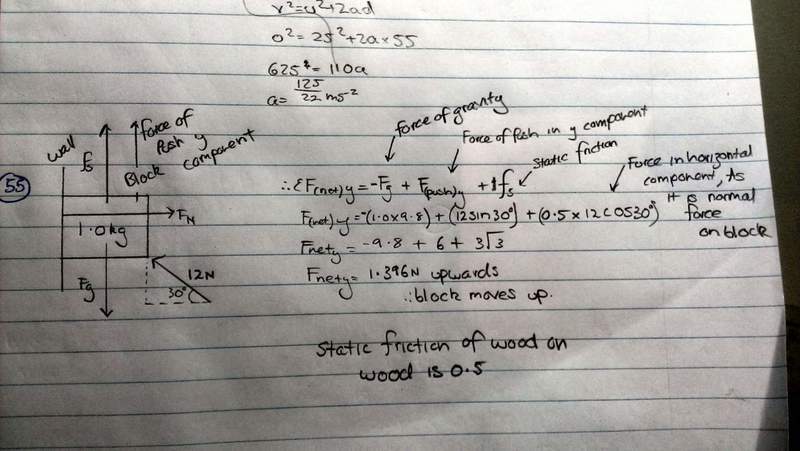 v²=u²+2ad
0²=25²+2a×55
625=110a
a=125/22 ms⁻²
55
wall
fs
Force of Push y component
Block
FN
1.0kg
Fg
12N
30°
Force of gravity
Force of Push in y component
static friction
Force in horizontal component, As it is normal force on block
∴ΣF(net)y=-Fg + F(push)y + fs
F(net)y=-(1.0×9.8)+(12sin30°)+(0.5×12cos30°)
Fnety=-9.8+6+3√3
Fnety=1.396N upwards
∴block moves up.
Static friction of wood on
wood is 0.5